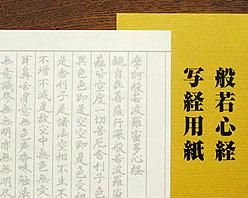 般若心経
写経用紙
摩訶般若波羅蜜多心経
観自在菩薩行深般若波羅
蘊皆空度一切苦厄舎利子
異色色即是空空即是色受
是舎利子是諸法空相不生
不増不減是故空中無色無受
耳鼻舌身意無色声香味触法
無意識界無無明亦無無明尽